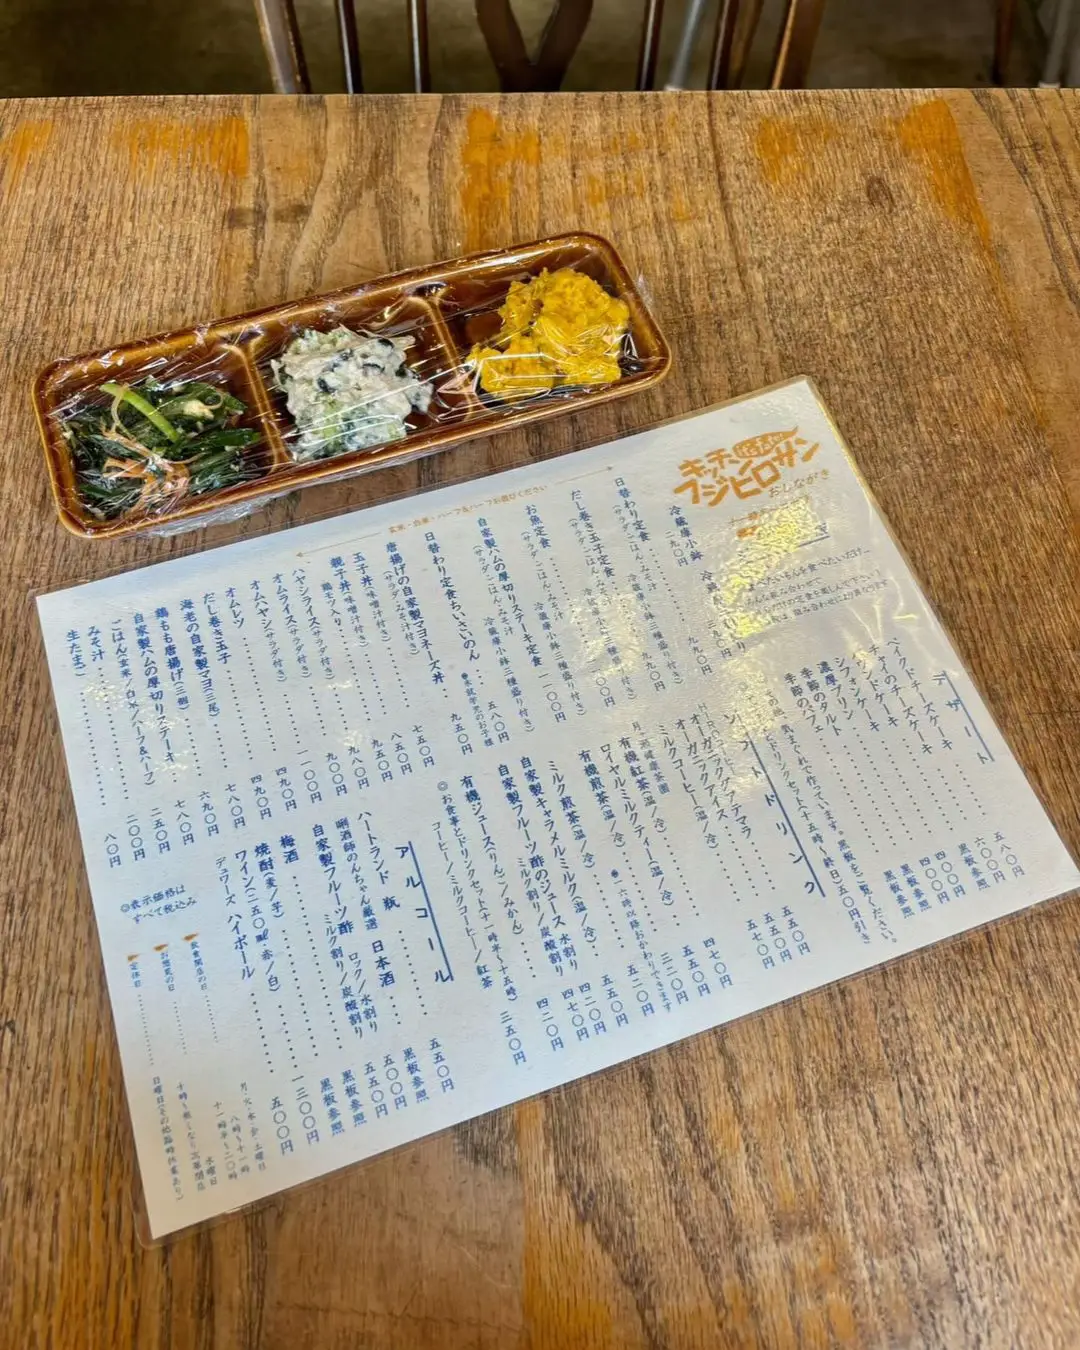 キッチン
フジヒロサン
おしながき
冷蔵庫小鉢
二九〇円
玄米・白米・ハーフ&ハーフお選びください
日替わり定食
(サラダごはん・みそ汁
冷蔵庫小鉢三種盛り付き)
九九〇円
だし巻き玉子定食
(サラダごはん・みそ汁
お魚定食
(サラダごはん・みそ汁
冷蔵庫小鉢三種盛り付き)
自家製ハムの厚切りステーキ定食
(サラダごはん・みそ汁
冷蔵庫小鉢三種盛り付き)
日替わり定食ちいさいのん
五八〇円
●未就学児のお子様
唐揚げの自家製マヨネーズ丼
(サラダ・みそ汁付き)
九五〇円
玉子丼(味噌汁付き)
七五〇円
親子丼(味噌汁付き)
鶏モツ入り
八五〇円
ハヤシライス(サラダ付き)
九五〇円
オムライス(サラダ付き)
九八〇円
オムハヤシ(サラダ付き)
オムレツ
だし巻き玉子
四九〇円
海老の自家製マヨ(三尾)
七八〇円
鶏もも唐揚げ(三個)
六九〇円
自家製ハムの厚切りステーキ
七八〇円
ごはん(玄米/白米/ハーフ&ハーフ)
二五〇円
みそ汁
二〇〇円
生たまご
八〇円
デザート
ベイクドチーズケーキ
五八〇円
チャイのチーズケーキ
六〇〇円
黒板参照
シフォンケーキ
四〇〇円
濃厚プリン
四〇〇円
季節のタルト
黒板参照
季節のパフェ
黒板参照
気まぐれで作っています。黒板をご覧ください。
ドリンクセット(十五時〜終日)五〇円引き
ソフトドリンク
五五〇円
オーガニックアイス
五五〇円
オーガニックコーヒー(温/冷)
ミルクコーヒー(温/冷)
五七〇円
月ヶ瀬健康茶園
有機紅茶(温/冷)
四七〇円
ロイヤルミルクティー(温/冷)
五五〇円
有機煎茶(温/冷)
三二〇円
●一六時以降おかわりできます
ミルク煎茶(温/冷)
五二〇円
自家製キャラメルミルク(温/冷)
五五〇円
自家製フルーツ酢のジュース
水割り
四二〇円
ミルク割り/炭酸割り
四七〇円
有機ジュース(りんご/みかん)
四二〇円
◎お食事とドリンクセット(十一時半〜十五時)三五〇円
コーヒー/ミルクコーヒー/紅茶
アルコール
ハートランド 瓶
五五〇円
唎酒師のんちゃん厳選 日本酒
黒板参照
自家製フルーツ酢
ロック/水割り
五〇〇円
ミルク割り/炭酸割り
五五〇円
梅酒
黒板参照
焼酎(麦/芋)
黒板参照
ワイン(二五〇ml 赤/白)
一三〇〇円
デュワーズ ハイボール
五〇〇円
◎表示価格は
すべて税込み
飲食開店の日
月・火・木・金・土曜日
八時〜十一時
十一時半〜二〇時
お惣菜の日
水曜日
十時〜無くなり次第閉店
定休日
日曜日(その他臨時休業あり)